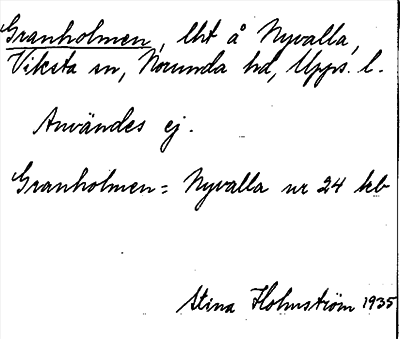 Granholmen, lht å Nyvalla,
Viksta sn, Norunda hd, Upps. l.
Användes ej.
Granholmen = Nyvalla nr 24 kb
Stina Holmström 1935